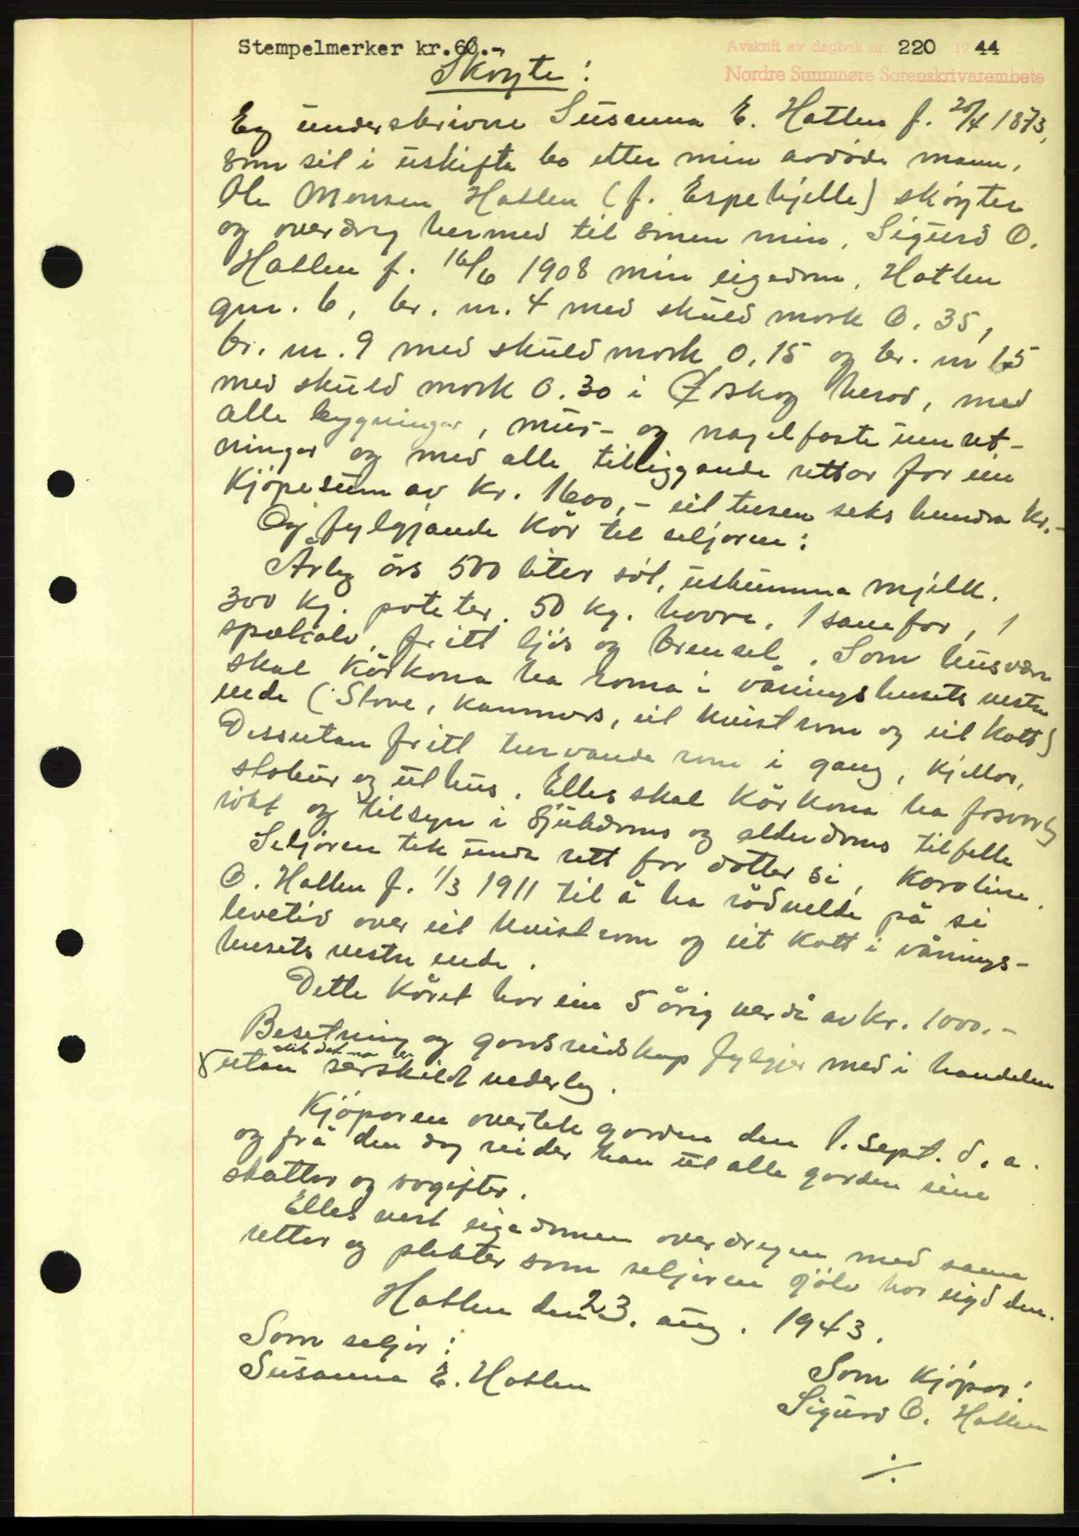 Stempelmerker kr. 60.-
Avskrift av dagbok nr. 220 1944
Nordre Sunnmøre Sorenskrivarembete
Skøyte:
Eg underskrivne Susanna E. Hatlen f. 20/4 1873,
som sit i uskifta bo etter min avdøde mann,
Ole Monsen Hatlen (f. Espehjelle) skøyter
og overdreg hermed til sonen min, Sigurd O.
Hatlen f. 16/6 1908 min eigedom, Hatlen
gnr. 6, br. nr. 4 med skuld mork 0.35,
br. nr. 9 med skuld mork 0.15 og br. nr 15
med skuld mork 0.30 i Ørskog herad, med
alle bygningar, mur- og nagelfaste innret-
ninger og med alle tilliggande rettar for ein
Kjøpesum av kr. 1600,- eit tusen seks hundra kr.-
Og fylgjande kår til seljaren:
Årleg års 500 liter søt, uskumma mjelk,
300 kg. poteter, 50 kg. havre, 1 sauefor, 1
spækalv, fritt ljos og brensel. Som husvære
skal kårkona ha roma i våningshusets vestre
ende (Stove, kammers, eit kvistrom og eit kott)
Dessutan fritt turvande rom i gang, kjellar,
stabur og uthus. Elles skal kårkona ha forsvarleg
røkt og tilsyn i sjukdoms og alderdoms tilfelle
Seljaren tek unda rett for dotter si, Karoline
O. Hatlen f. 1/3 1911 til å ha rådvelde på si
levetid over eit kvistrom og eit kott i vånings-
husets vestre ende.
Dette kåret har ein 5 årig verdi av kr. 1000.-
Besetning og gardsreidskap fylgjer med i handelen
slik det no er
utan særskild vederlag.
Kjøparen overtek garden den 1. sept. d. a.
og frå den dag reider han ut alle garden sine
skattar og avgifter.
Elles vert eigedomen overdregen med same
rettar og plikter som seljaren sjølv har eigd den.
Hatlen den 23. aug. 1943.
Som seljar:
Susanna E. Hatlen
Som kjøpar:
Sigurd O. Hatlen
./.